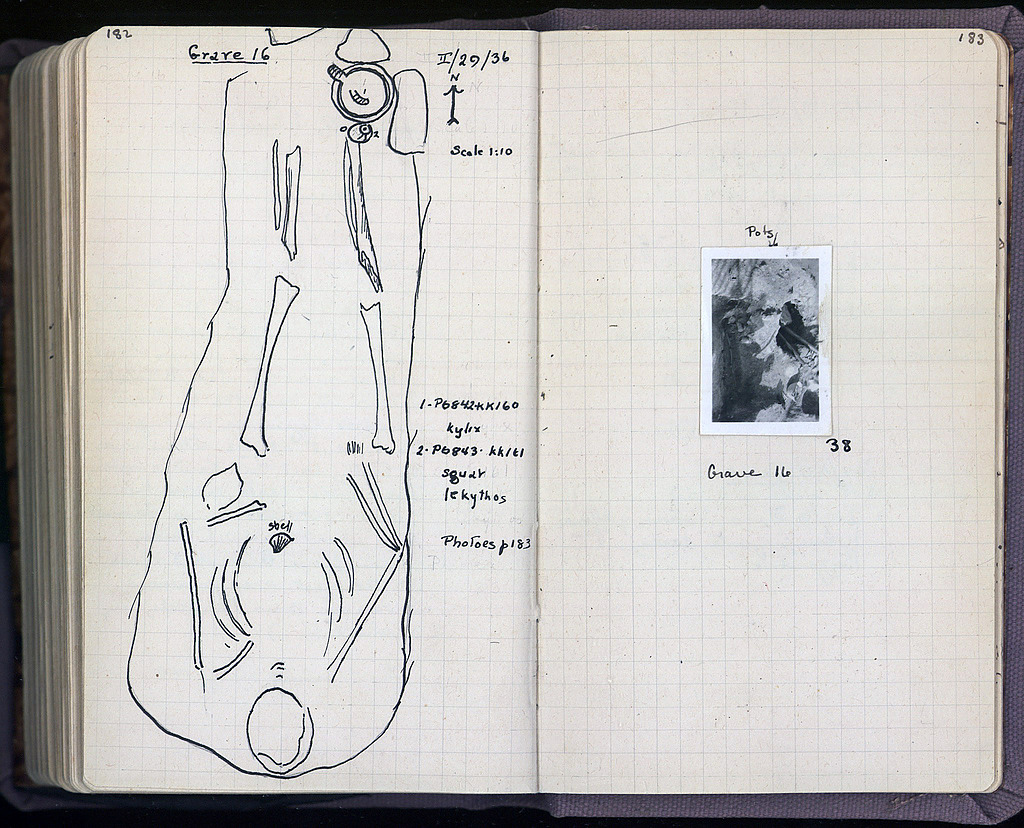 182
Grave 16
II/29/36
N
Scale 1:10
2
shell
1-P6842-KK160
kylix
2-P6843-KK161
squat
lekythos
Photoes p183
183
Pots
38
Grave 16